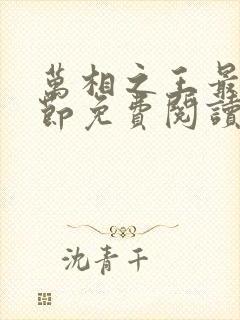 萬相之王最
節免費閱讀
沈青千